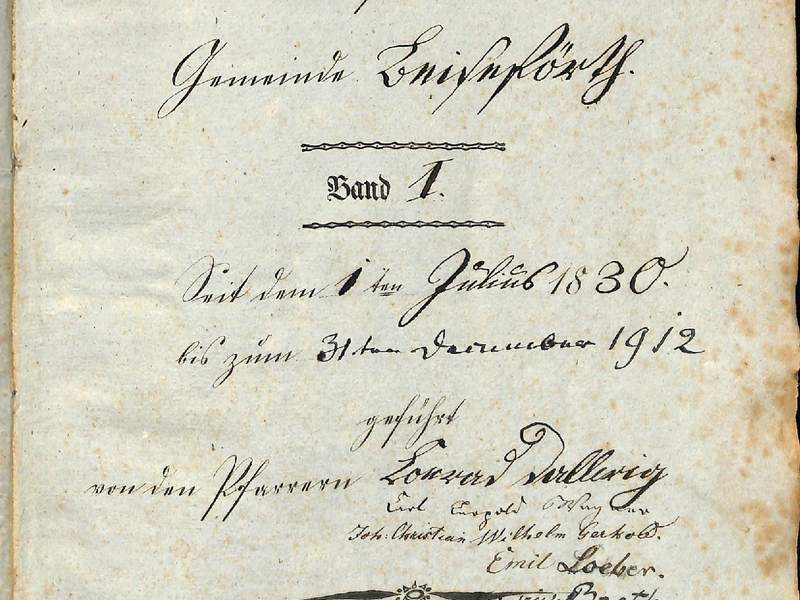 Gemeinde Beiseförth.
Band 1.
Seit dem 1ten Julius 1830.
bis zum 31ten December 1912
geführt
von den Pfarrern Conrad Dallwig
Carl Leopold Wagner
Joh. Christian Wilhelm Gerhold.
Emil Loeber.